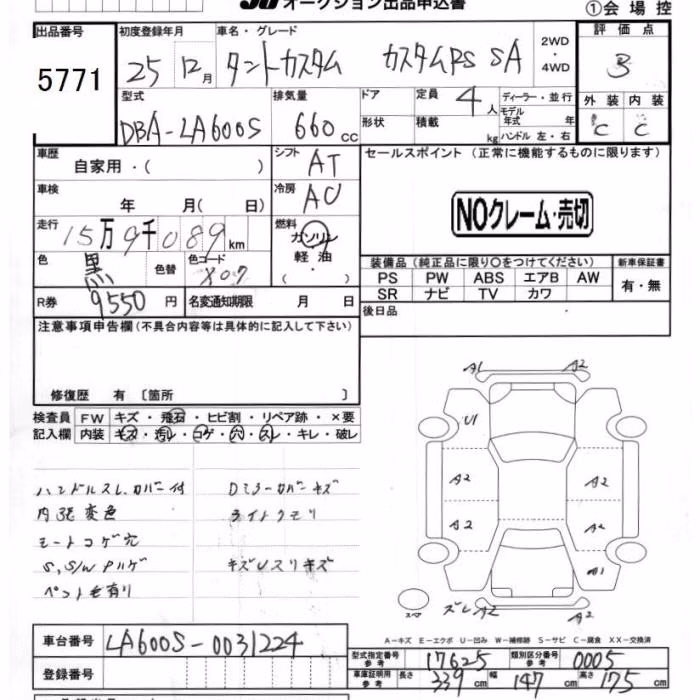 オークション出品申込書
①会場控
出品番号
5771
初度登録年月
25 12月
車名・グレード
タントカスタム カスタムRS SA
2WD
・
4WD
評価点
3
外装 内装
C C
型式
DBA-LA600S
排気量
660cc
ドア
形状
定員 4人
積載 kg
ディーラー・並行
モデル
年式 年
ハンドル 左・右
車歴
自家用・( )
シフト
AT
セールスポイント (正常に機能するものに限ります)
車検
年 月( 日)
冷房
AC
NOクレーム・売切
走行
15万9千089km
燃料
ガソリン
軽油
( ・ )
色
黒
色替
色コード
X07
装備品 (純正品に限り〇をつけてください)
新車保証書
PS PW ABS エアB AW
有・無
SR ナビ TV カワ
R券
9550円
名変通知期限 月 日
後日品
注意事項申告欄(不具合内容等は具体的に記入して下さい)
修復歴 有 〔箇所 〕
検査員
記入欄
FW キズ・飛石・ヒビ割・リペア跡・×要
内装 キズ・汚れ・コゲ・穴・スレ・キレ・破レ
ハンドルスレ、カバー付
Dミラーカバーキズ
内張変色
ライトクモリ
シートコゲ穴
S,S/WPハゲ
キズUスリキズ
ペット毛有り
A1 A2
U1
A2 A2
A2 A2
A1
ズレ A2 A2
A-キズ E-エクボ U-凹み W-補修跡 S-サビ C-腐食 XX-交換済
車台番号
LA600S-0031224
登録番号
型式指定番号
参考
17625
類別区分番号
参考
0005
車庫証明用
参考
長さ 339cm 幅 147cm 高さ 175cm